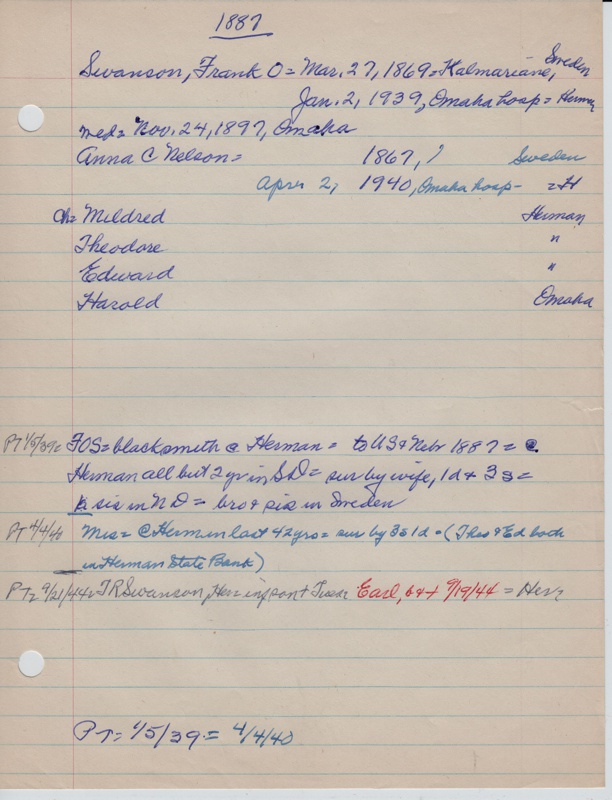 1887
Swanson, Frank O = Mar. 27, 1869 = Kalmariane, Sweden
Jan. 2, 1939, Omaha hosp = Herman
med = Nov. 24, 1897, Omaha
Anna C Nelson = 1867, ? Sweden
Apr 2, 1940, Omaha hosp - = H
Ch = Mildred Herman
Theodore "
Edward "
Harold Omaha
PT 1/5/39 = FOS = blacksmith @ Herman = to US & Nebr 1887 = @
Herman all but 2 yr in SD = sur by wife, 1d + 3s =
sis in ND = bro & sis in Sweden
PT 4/4/40 Mrs = @ Herman last 42 yrs = sur by 3s 1d = (Theo & Ed both
in Herman State Bank)
PT = 9/21/44 = TR Swanson, Her = inf son Earl, b & + 9/19/44 = Her =
PT = 1/5/39 = 4/4/40